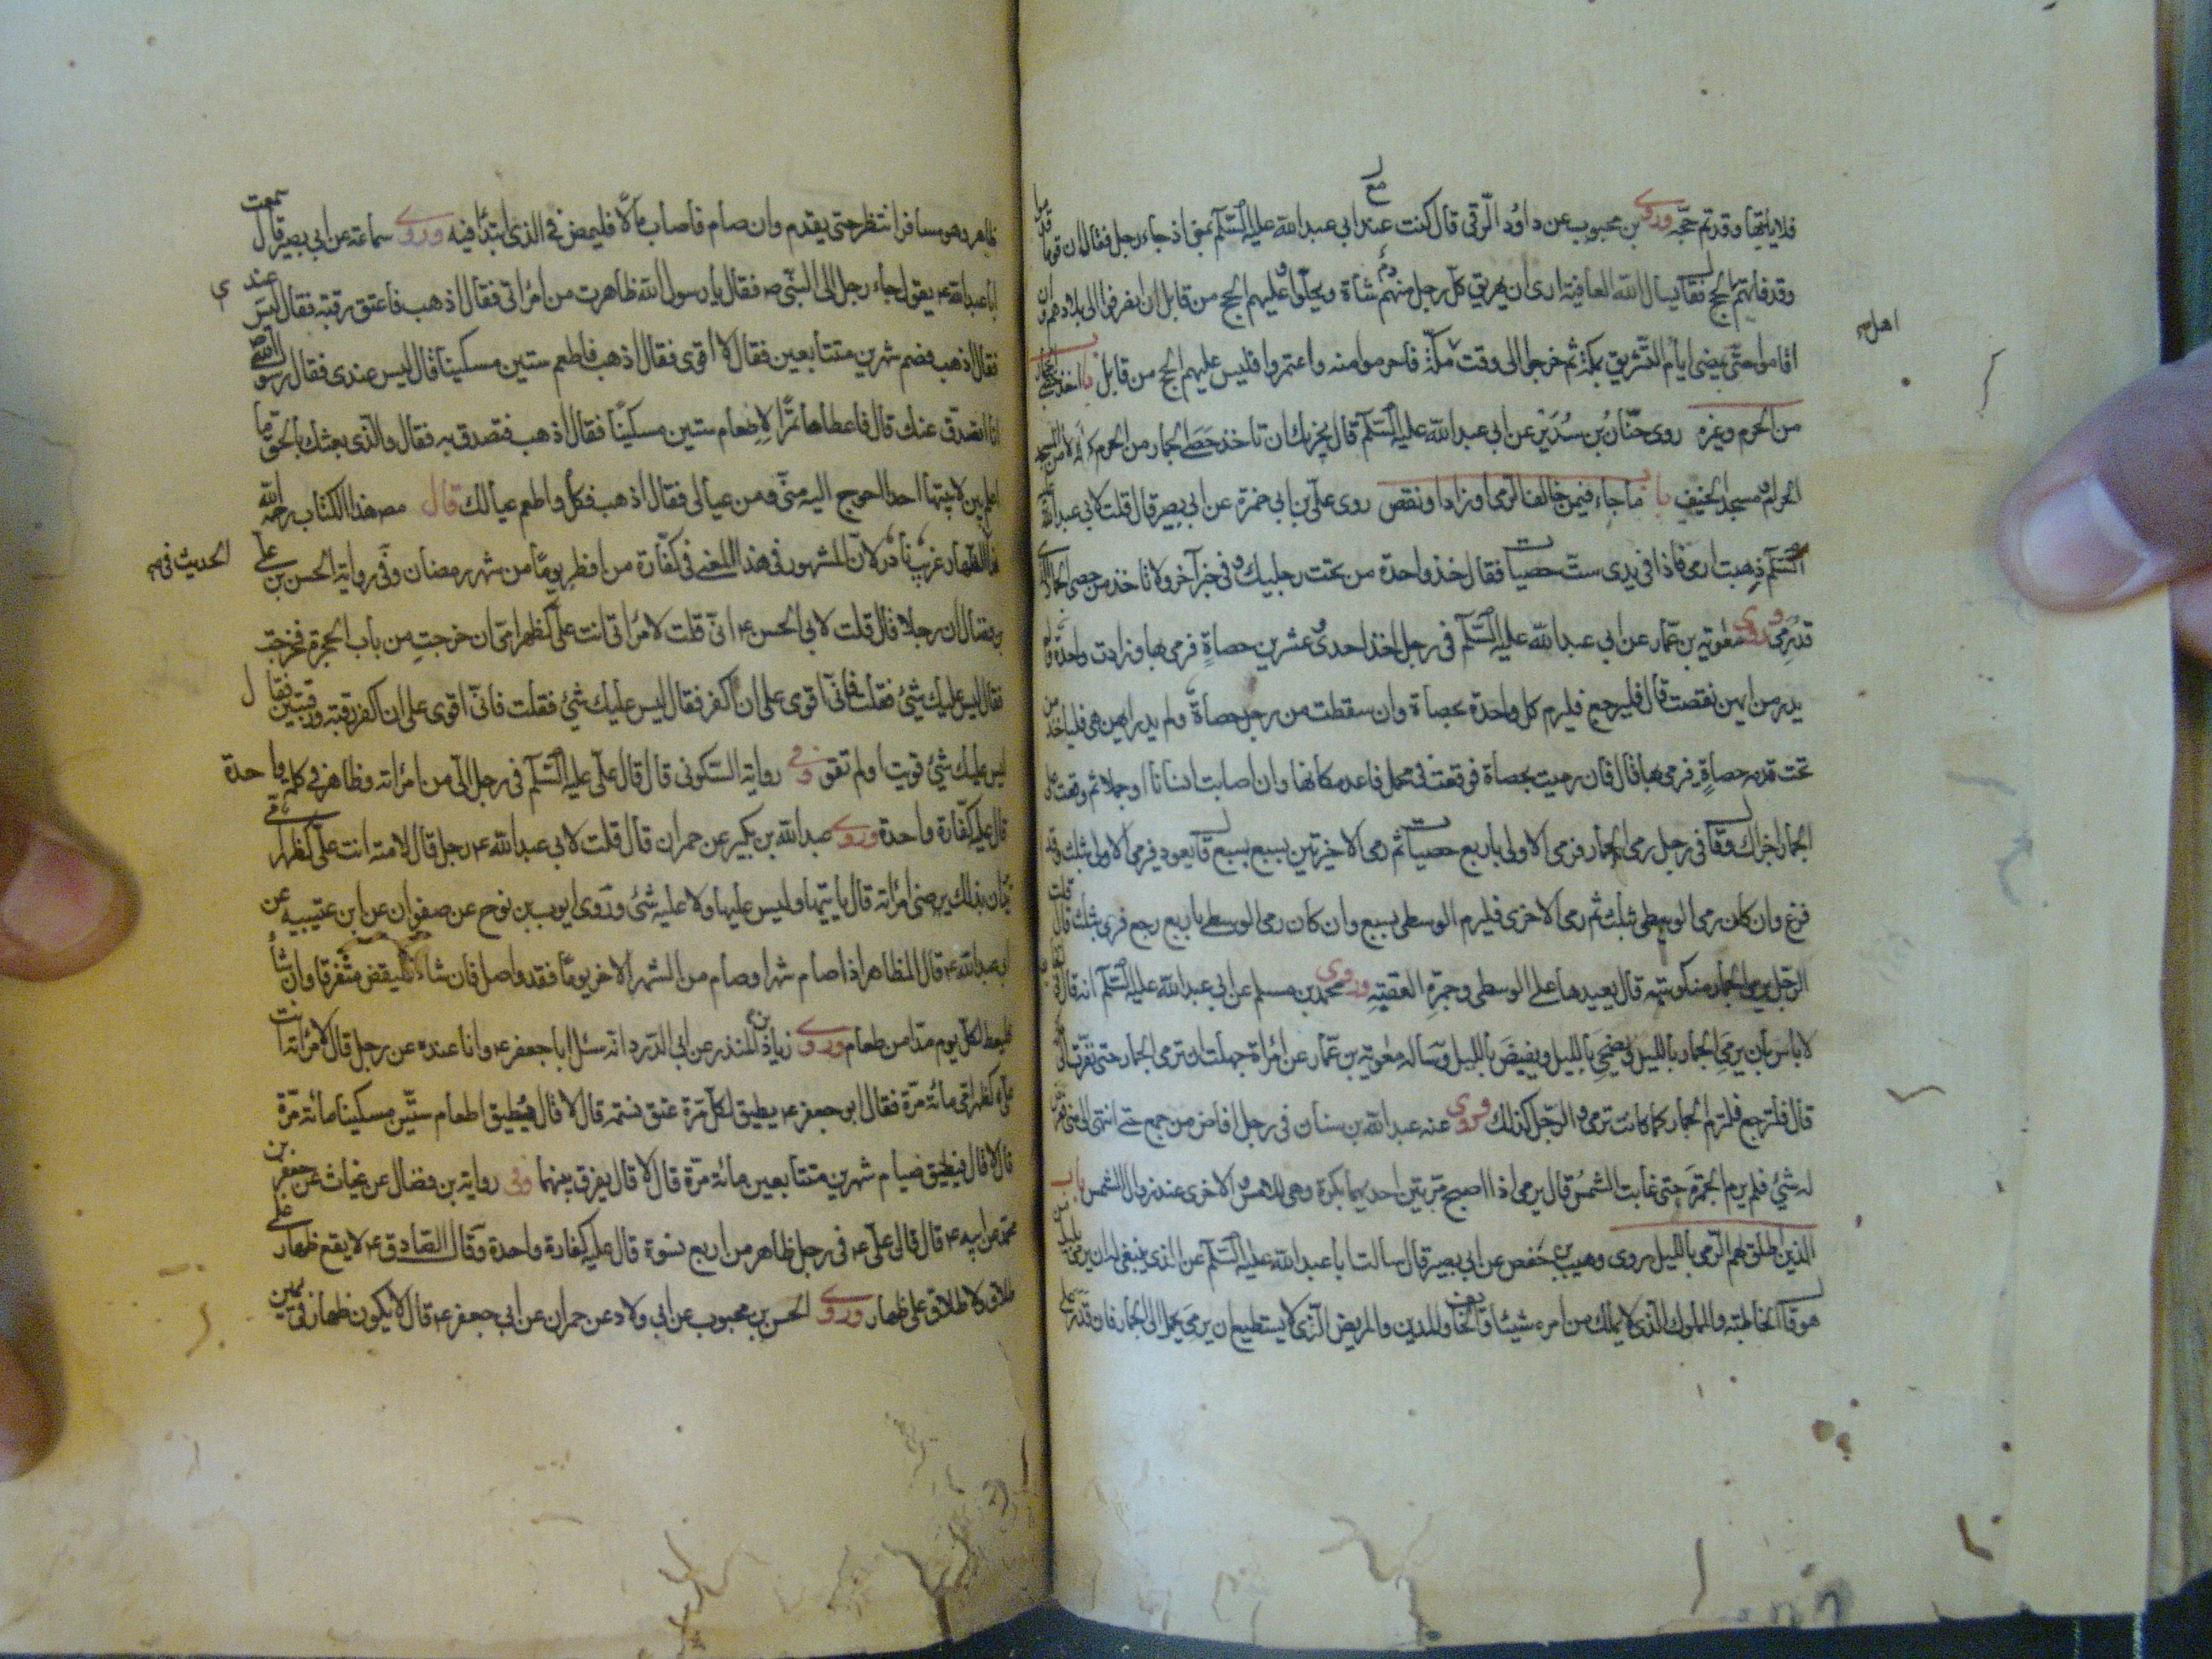 فلا يلتجا وقد تم حجّه وروى بن محبوب عن داوُد الرّقي قال كنت عند ابي عبد الله عليه السّلم بمنى اذ جاء رجل فقال ان قوما قدموا
وقد فاتهم الحج فقا نسال الله العافية ارى ان يهريق كلّ رجل منهم دم شاة ويحلّوا وعليهم الحج من قابل ان انصرفوا الى بلادهم وان
اهل
اقاموا حتّى يمضى ايام التّشريق بمكة ثم خرجوا الى وقت مكّة فاحرموا منه واعتمروا فليس عليهم الحج من قابل باب اخذ حصى الجمار
من الحرم وغيره روى حنّان بُن سُدَيْر عن ابي عبد الله عليه السّلم قال يجزيك ان تاخذ حَصَى الجمار من الحرم كله الا من المسجد
الحرام ومسجد الخيف باب ما جاء فيمن خالف الرّمى او زاد او نقص روى علي بن ابي حمزة عن ابي بصير قال قلت لابي عبد الله
السّلم ذهبت ارمى فاذا في يدى ستّ حصيات فقال خذ واحدة من تحت رجليك وفى خبر آخر ولا تاخذ من حصى الجمار الذى
قد رُمى وروى معوية بن عمّار عن ابي عبد الله عليه السّلم فى رجل اخذ احدى وعشرين حصاةٍ فرمى بها وزادت واحدة ولم
يدر من ايهن نقصت قال فليرجع فليرم كل واحدة بحصاة وان سقطت من رجل حصاةٌ ولم يدر ايهن هي فلياخذ من
تحت قدمه حصاةٍ فيرمى بها قال فان رميت بحصاة فوقعت في محمل فاعد مكانها وان اصابت انسانا او جملا ثم وقعت على
الجمار اجزاك وقال فى رجل رمى الجمار فرمى الاولى باربع حصيات ثم رمى الاخيرتين بسبع بسبع قا يعود فيرمى الاولى بثلث وقد
فرغ وان كان رمى الوسطى بثلث ثم رمى الاخرى فليرم الوسطى بسبع وان كان رمى الوسطى باربع رجع فرمى بثلث قال قلت
الرّجل يرمى الجمار منكوسة قال يعيدها على الوسطى وجمرة العقبة وروى محمد بن مسلم عن ابي عبد الله عليه السّلم انه قال
لا باس بان يرمى الجمار بالليل ويضحى بالليل ويفيض بالليل وسَاله معوية بن عمّار عن امرأة جهلت ان ترمى الجمار حتى نفرت الى
قال فلترجع فلترم الجمار كما كانت ترمى والرّجل كذلك وروى عنه عبد الله بن سنان فى رجل افاض من جمع حتى انتهى الى منى فعرض
له شيْ فلم يرم الجمرة حتى غابت الشمسُ قال يرمى اذا اصبح مرّتين احديهما بكرة وهي للامس والاخرى عند زوال الشمس باب
الذين اطلق لهم الرّمى بالليل روى وهيب بن حفص عن ابي بصير قال سالت ابا عبد الله عليه السّلم عن الذى ينبغى له ان يرمى بليل من
هو قال الحاطبة والمملوك الذى لا يملك من امره شيئا والخائف والمدين والمريض الّذى لا يستطيع ان يرمى يحمل الى الجمار فان قدر على
ظاهر وهو مسافر انتظر حتى يقدم وان صام فاصاب مالًا فليمض في الذى ابتدأ فيه وروى سماعة عن ابي بصير قال سمعت
ابا عبد الله ع يقول جاء رجل الى النّبى ص فقال يا رسول الله ظاهرت من امراتى فقال اذهب فاعتق رقبة فقال ليس عندى
فقال اذهب فصم شهرين متتابعين فقال لا اقوى فقال اذهب فاطعم ستين مسكينا قال ليس عندى فقال رسول الله ص
انا اتصدّق عنك قال فاعطاها تمرًا لاِطعام ستين مسكينًا فقال اذهب فتصدق به فقال والّذى بعثك بالحق ما
اعلم بين لابتيها احدا احوج اليه منّى ومن عيالى فقال اذهب فكل واطعم عيالك قال مصه هذا الكتاب رحمه الله
الحديث فى
هذا الظهار غريب نادر لانّ المشهور فى هذا المعنى فى كفّارة من افطر يومًا من شهر رمضان وفى رواية الحسن بن على
بن فضال ان رجلا قال قلت لابي الحسن ع انّى قلت لامرأتى انت علىّ كظهر امى ان خرجتِ من باب الحجرة فخرجت
فقال ليس عليك شيْ فقلت فانّى اقوى على ان اكفر فقال ليس عليك شيْ فقلت فانّى اقوى على ان اكفر رقبة ورقبتين فقال
ليس عليك شيْ قويت او لم تقو وفى رواية السّكونى قال قال علىّ عليه السّلم فى رجل الى من امرأته وظاهر فى كلمة واحدة
قال عليه كفّارة واحدة وروى عبد الله بن بكير عن حمران قال قلت لابي عبد الله ع رجل قال لامته انت علىّ كظهر امّى
يريد ان بذلك يرضى امرأته قال ياتيها وليس عليها ولا عليه شئ وروى ايوب بن نوح عن صفوان عن ابن عيينه عن
ابي عبد الله ع قال المظاهر اذا صام شهرا وصام من الشهر الاخر يومًا فقد واصل فان شاء فليقض متفرقا وان شاء
فليعط لكلّ يوم مدّا من طعام وروى زياد بن المنذر عن ابي الدّرداء انه سئل ابا جعفر ع وانا عنده عن رجل قال لامرأته انت
علىّ كظهر امّى مائة مرّة فقال ابو جعفر ع يطيق لكلّ مرّة عتق نسمة قال لا قال فيُطيق اطعام ستّين مسكينا مائة مرّة
قال لا قال فيطيق صيام شهرين متتابعين مائة مرّة قال لا قال يفرق بينهما وفى رواية بن فضال عن غياث عن جعفر بن
محمد عن ابيه ع قال قال علىّ ع فى رجل ظاهر من اربع نسوة قال عليه كفارة واحدة وقَال الصّادق ع لا يقع ظهار على
طلاق ولا طلاق على ظهار وروى الحسن بن محبوب عن ابي ولاد عن حمران عن ابي جعفر ع قال لا يكون ظهار فى يمين